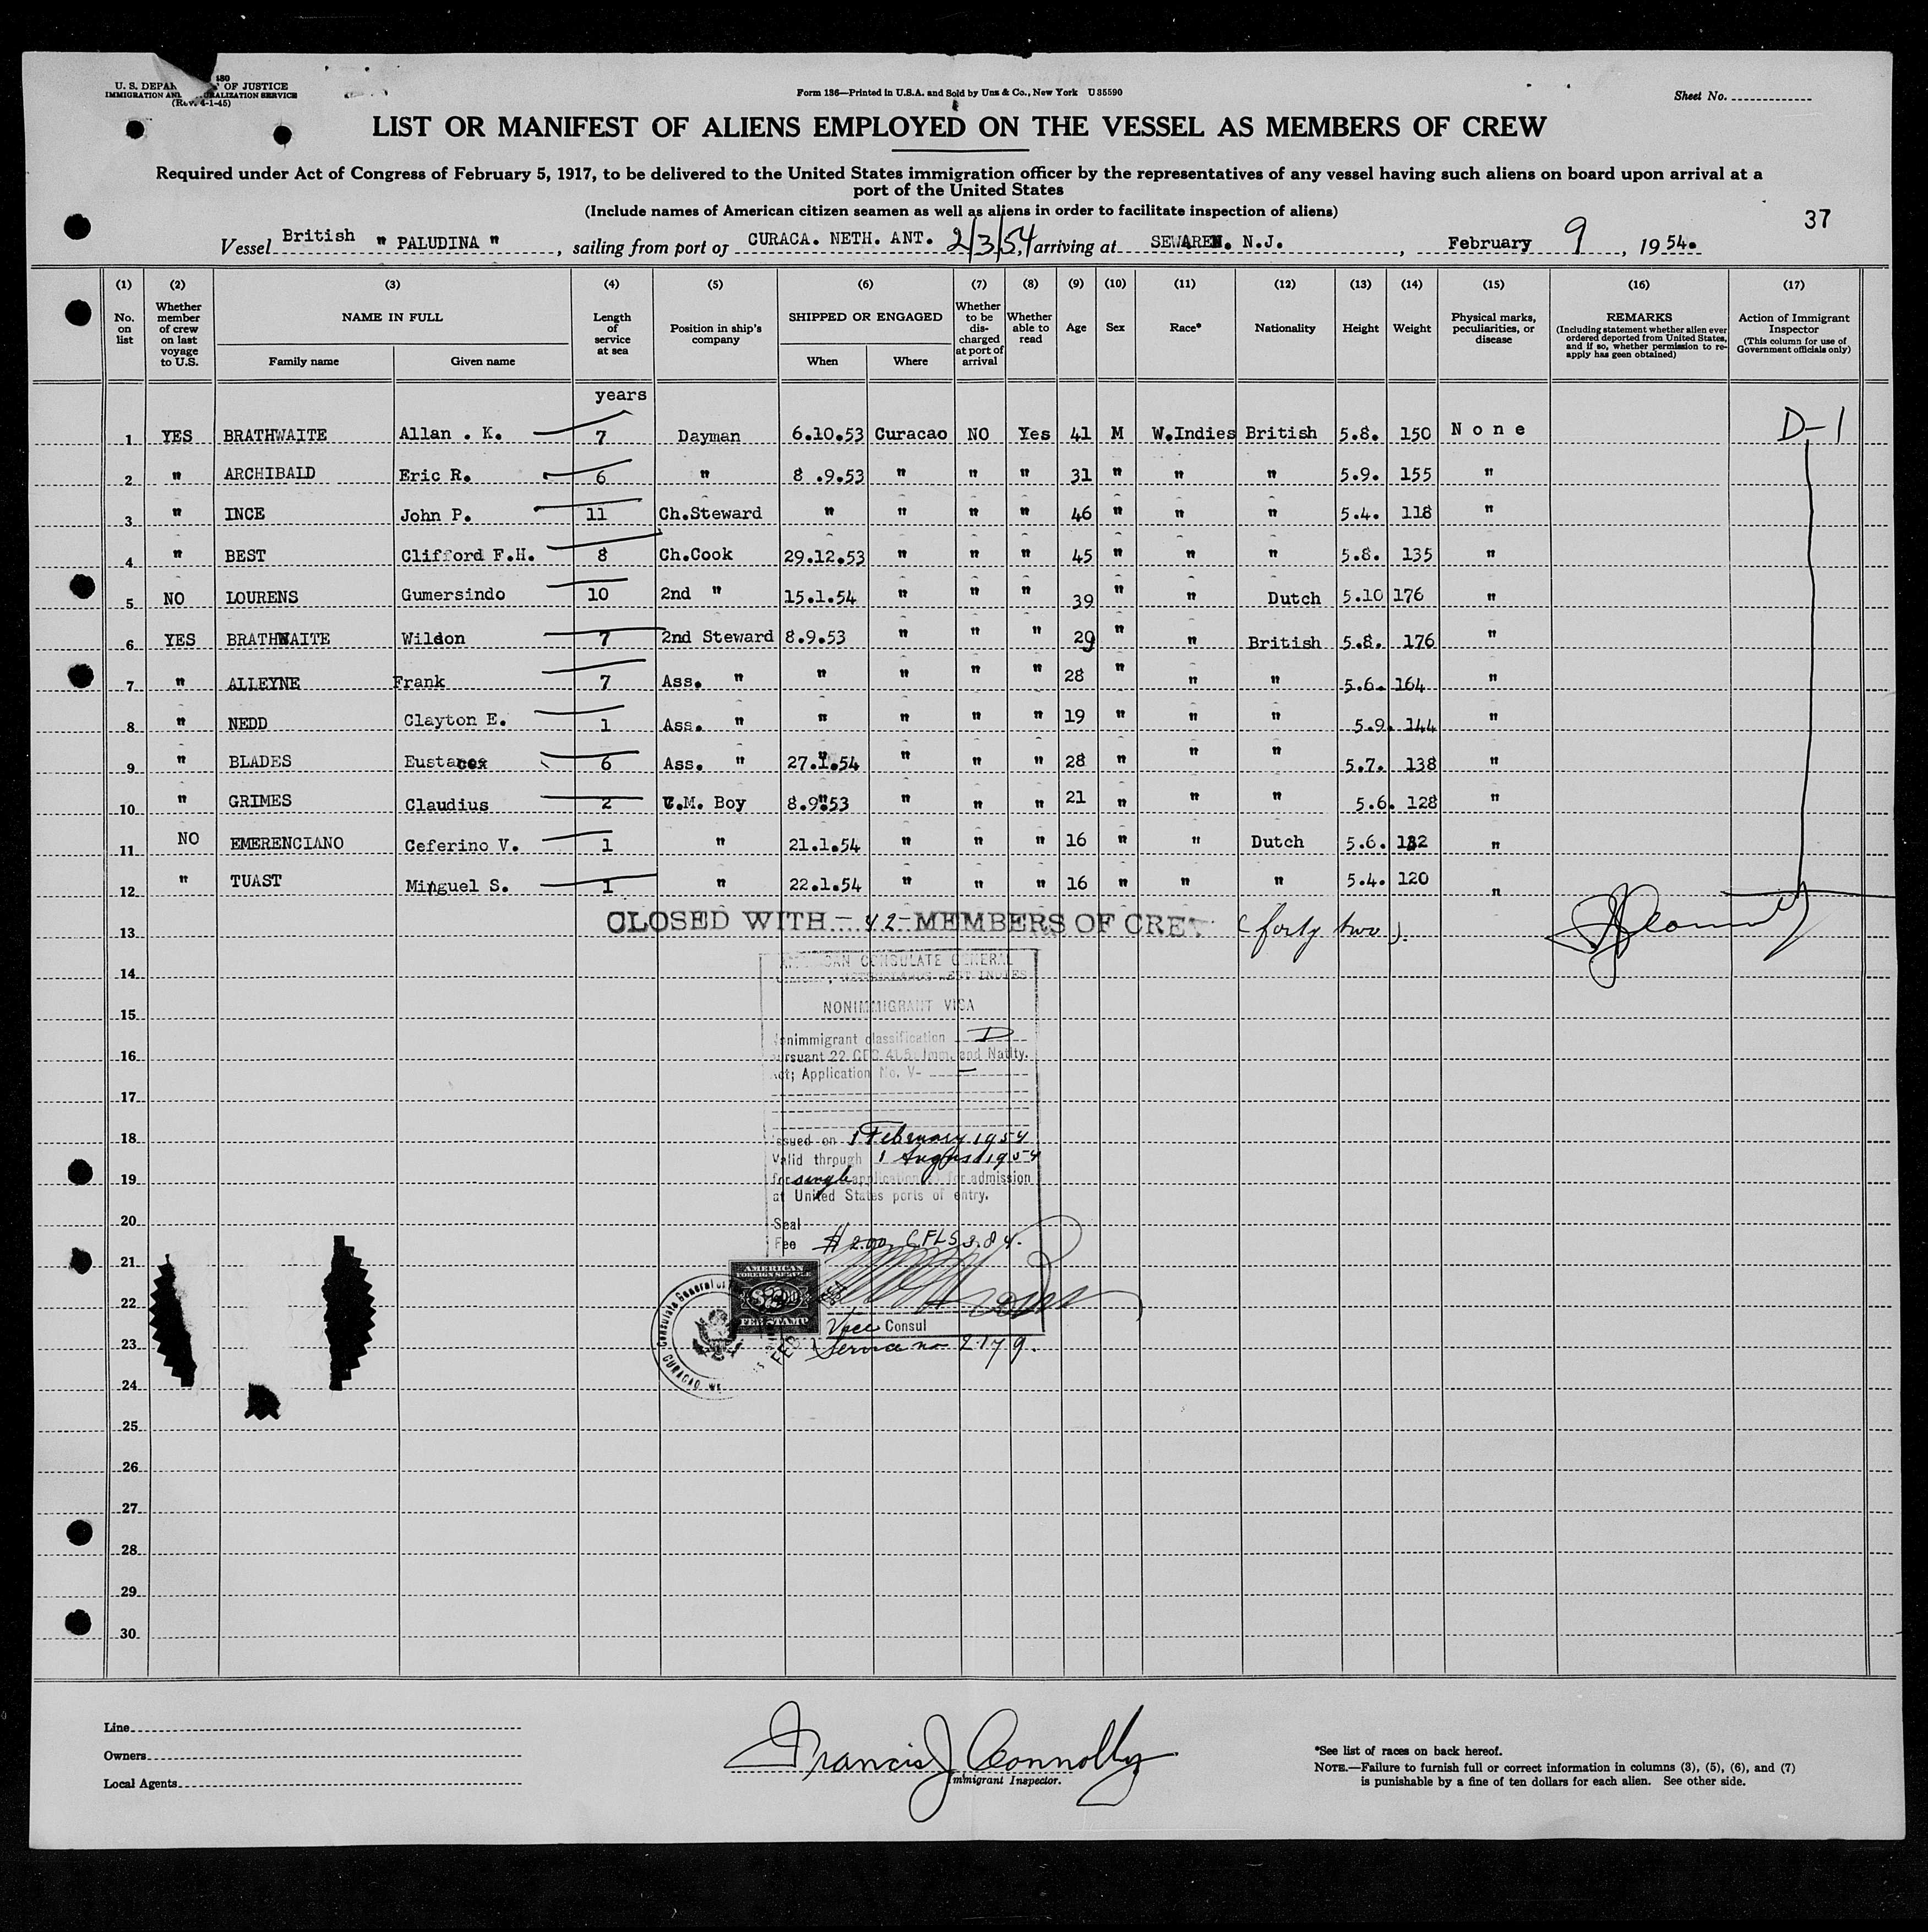 180
U. S. DEPA OF JUSTICE
IMMIGRATION AND RALIZATION SERVICE
(Rev. 4-1-45)
Form 136—Printed in U.S.A. and Sold by Unz & Co., New York U 35590
Sheet No.
LIST OR MANIFEST OF ALIENS EMPLOYED ON THE VESSEL AS MEMBERS OF CREW
Required under Act of Congress of February 5, 1917, to be delivered to the United States immigration officer by the representatives of any vessel having such aliens on board upon arrival at a
port of the United States
(Include names of American citizen seamen as well as aliens in order to facilitate inspection of aliens)
37
Vessel British " PALUDINA ", sailing from port of CURACA. NETH. ANT. 2/3/54, arriving at SEWAREN. N.J., February 9, 1954.
(1) (2) (3) (4) (5) (6) (7) (8) (9) (10) (11) (12) (13) (14) (15) (16) (17)
No. on list
Whether member of crew on last voyage to U.S.
NAME IN FULL
Family name Given name
Length of service at sea
Position in ship's company
SHIPPED OR ENGAGED
When Where
Whether to be discharged at port of arrival
Whether able to read
Age Sex Race* Nationality Height Weight
Physical marks, peculiarities, or disease
REMARKS
(Including statement whether alien ever ordered deported from United States, and if so, whether permission to re-apply has geen obtained)
Action of Immigrant Inspector
(This column for use of Government officials only)
years
1 YES BRATHWAITE Allan . K. 7 Dayman 6.10.53 Curacao NO Yes 41 M W.Indies British 5.8. 150 None D-1
2 " ARCHIBALD Eric R. 6 " 8 .9.53 " " " 31 " " " 5.9. 155 "
3 " INCE John P. 11 Ch.Steward " " " " 46 " " " 5.4. 118 "
4 " BEST Clifford F.H. 8 Ch.Cook 29.12.53 " " " 45 " " " 5.8. 135 "
5 NO LOURENS Gumersindo 10 2nd " 15.1.54 " " " 39 " " Dutch 5.10 176 "
6 YES BRATHWAITE Wildon 7 2nd Steward 8.9.53 " " " 29 " " British 5.8. 176 "
7 " ALLEYNE Frank 7 Ass. " " " " " 28 " " " 5.6. 164 "
8 " NEDD Clayton E. 1 Ass. " " " " " 19 " " " 5.9. 144 "
9 " BLADES Eustace 6 Ass. " 27.1.54 " " " 28 " " " 5.7. 138 "
10 " GRIMES Claudius 2 C.M. Boy 8.9.53 " " " 21 " " " 5.6. 128 "
11 NO EMERENCIANO Ceferino V. 1 " 21.1.54 " " " 16 " " Dutch 5.6. 132 "
12 " TUAST Minguel S. 1 " 22.1.54 " " " 16 " " " 5.4. 120 "
CLOSED WITH - 42 - MEMBERS OF CREW (forty two).
13
14
15
16
17
18
19
20
21
22
23
24
25
26
27
28
29
30
AMERICAN CONSULATE GENERAL
CURACAO, NETHERLANDS WEST INDIES
NONIMMIGRANT VISA
Nonimmigrant classification D
pursuant 22 CFC 41.5; Imm. and Natlty.
Act; Application No. V- —
Issued on 1 February 1954
Valid through 1 August 1954
for single application(s) for admission
at United States ports of entry.
Seal
Fee $ 2.00 CFLS 3.84.
AMERICAN
FOREIGN SERVICE
$2.00
FEE STAMP
Consulate General of
CURACAO
FEB
Vice Consul
Service no 2179.
Line
Owners
Local Agents
Francis J Connolly
Immigrant Inspector.
*See list of races on back hereof.
NOTE.—Failure to furnish full or correct information in columns (3), (5), (6), and (7)
is punishable by a fine of ten dollars for each alien. See other side.